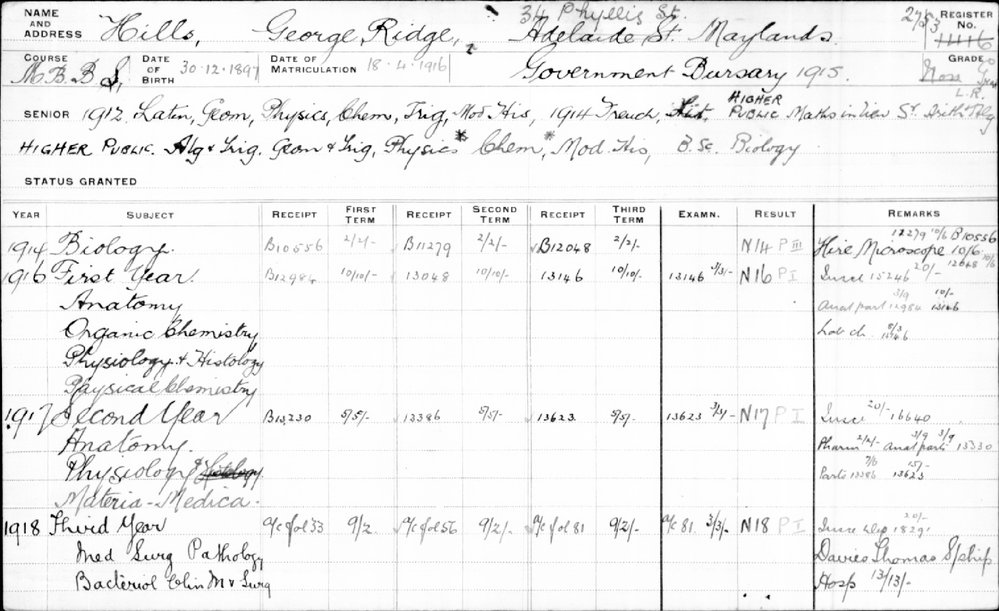 NAME AND ADDRESS Hills, George Ridge, 34 Phyllis St. Adelaide St. Maylands. REGISTER No. 2753 11116
COURSE M.B. B.S. DATE OF BIRTH 30.12.1897 DATE OF MATRICULATION 18.4.1916 Government Bursary 1915. GRADE
L.R.
SENIOR 1912 Latin, Geom, Physics, Chem, Trig, Mod His, 1914 French, HIGHER PUBLIC Maths in lieu Sr. Arith & Alg
HIGHER PUBLIC. Alg & Trig. Geom & Trig, Physics* Chem*, Mod. His, B.Sc. Biology
STATUS GRANTED
YEAR SUBJECT RECEIPT FIRST TERM RECEIPT SECOND TERM RECEIPT THIRD TERM EXAMN. RESULT REMARKS
12279 10/6 B10556
1914 Biology. B10556 2/2/- B11279 2/2/- B12048 2/2/- N14 P III Hire Microscope 10/6
12048 10/6
1916 First Year. B12984 10/10/- 13048 10/10/- 13146 10/10/- 13146 3/3/- N16 P I 15246 20/-
Anatomy 3/9 10/-
Anat part 12984 13146
Organic Chemistry Lab ch. 8/3
13146
Physiology & Histology
Physical Chemistry
1917 Second Year B13230 5/5/- 13386 5/5/- 13623 5/5/- 13623 3/3/- N17 P I 20/- 16640
Anatomy. Pharm 2/2/- Anat parts 3/9 3/9 13330
Physiology & Histology Parts 7/6 13386 15/- 13623
Materia-Medica.
1918 Third Year a/c fol 33 9/2 a/c fol 56 9/2/- a/c fol 81 9/2/- a/c 81 3/3/- N18 P I 20/- 1829
Med Surg Pathology Davies Thomas S/ship
Bacteriol Clin M & Surg Hosp 13/13/-